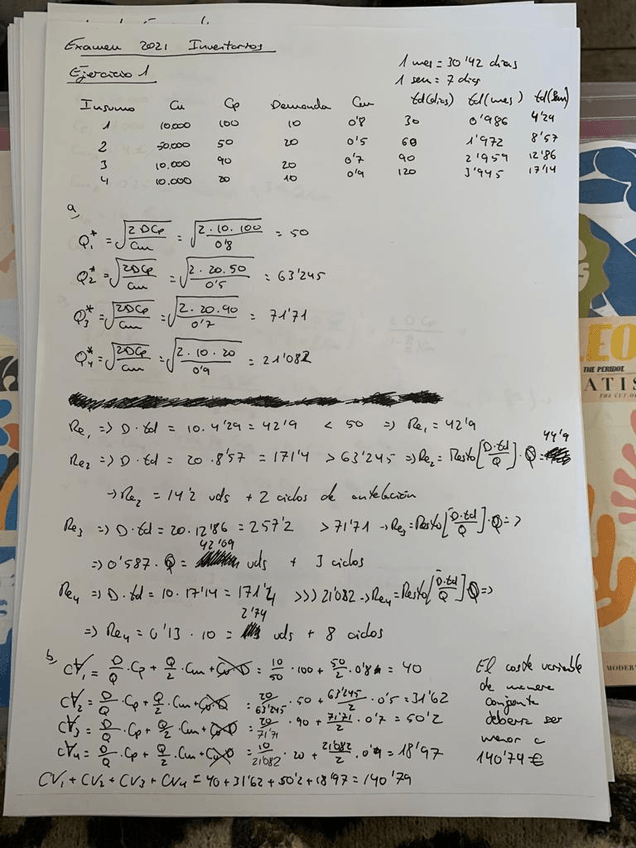 Examen 2021 Inventarios
Ejercicio 1
1 mes = 30'42 dias
1 sem = 7 dias
Insumo Cu Cp Demanda Cm td(dias) td(mes) td(sem)
1 10.000 100 10 0'8 30 0'986 4'29
2 50.000 50 20 0'5 60 1'972 8'57
3 10.000 90 20 0'7 90 2'959 12'86
4 10.000 20 10 0'9 120 3'945 17'14
a)
Q₁* = √(2DCp/Cm) = √(2·10·100/0'8) = 50
Q₂* = √(2DCp/Cm) = √(2·20·50/0'5) = 63'245
Q₃* = √(2DCp/Cm) = √(2·20·90/0'7) = 71'71
Q₄* = √(2DCp/Cm) = √(2·10·20/0'9) = 21'082
Re₁ => D·td = 10·4'29 = 42'9 < 50 => Re₁ = 42'9
Re₂ => D·td = 20·8'57 = 171'4 > 63'245 => Re₂ = Resto[D·td/Q]·Q = 44'9
→ Re₂ = 14'2 uds + 2 ciclos de antelación
Re₃ => D·td = 20·12'86 = 257'2 > 71'71 → Re₃ = Resto[D·td/Q]·Q =>
=> 0'587·Q = 42'09 uds + 3 ciclos
Re₄ => D·td = 10·17'14 = 171'4 >>> 21'082 → Re₄ = Resto[D·td/Q]Q =>
=> Re₄ = 0'13·10 = 2'74 uds + 8 ciclos
b)
CV₁ = D/Q·Cp + Q/2·Cm + Cu·D = 10/50·100 + 50/2·0'8 = 40
CV₂ = D/Q·Cp + Q/2·Cm + Cu·D = 20/63'245·50 + 63'245/2·0'5 = 31'62
CV₃ = D/Q·Cp + Q/2·Cm + Cu·D = 20/71'71·90 + 71'71/2·0'7 = 50'2
CV₄ = D/Q·Cp + Q/2·Cm + Cu·D = 10/21'082·20 + 21'082/2·0'9 = 18'97
CV₁ + CV₂ + CV₃ + CV₄ = 40 + 31'62 + 50'2 + 18'97 = 140'79
El coste variable
de manera
conjunta
debería ser
menor a
140'74 €
LEO
THE PERIODE
ATIS
THE CUT OU
MODER